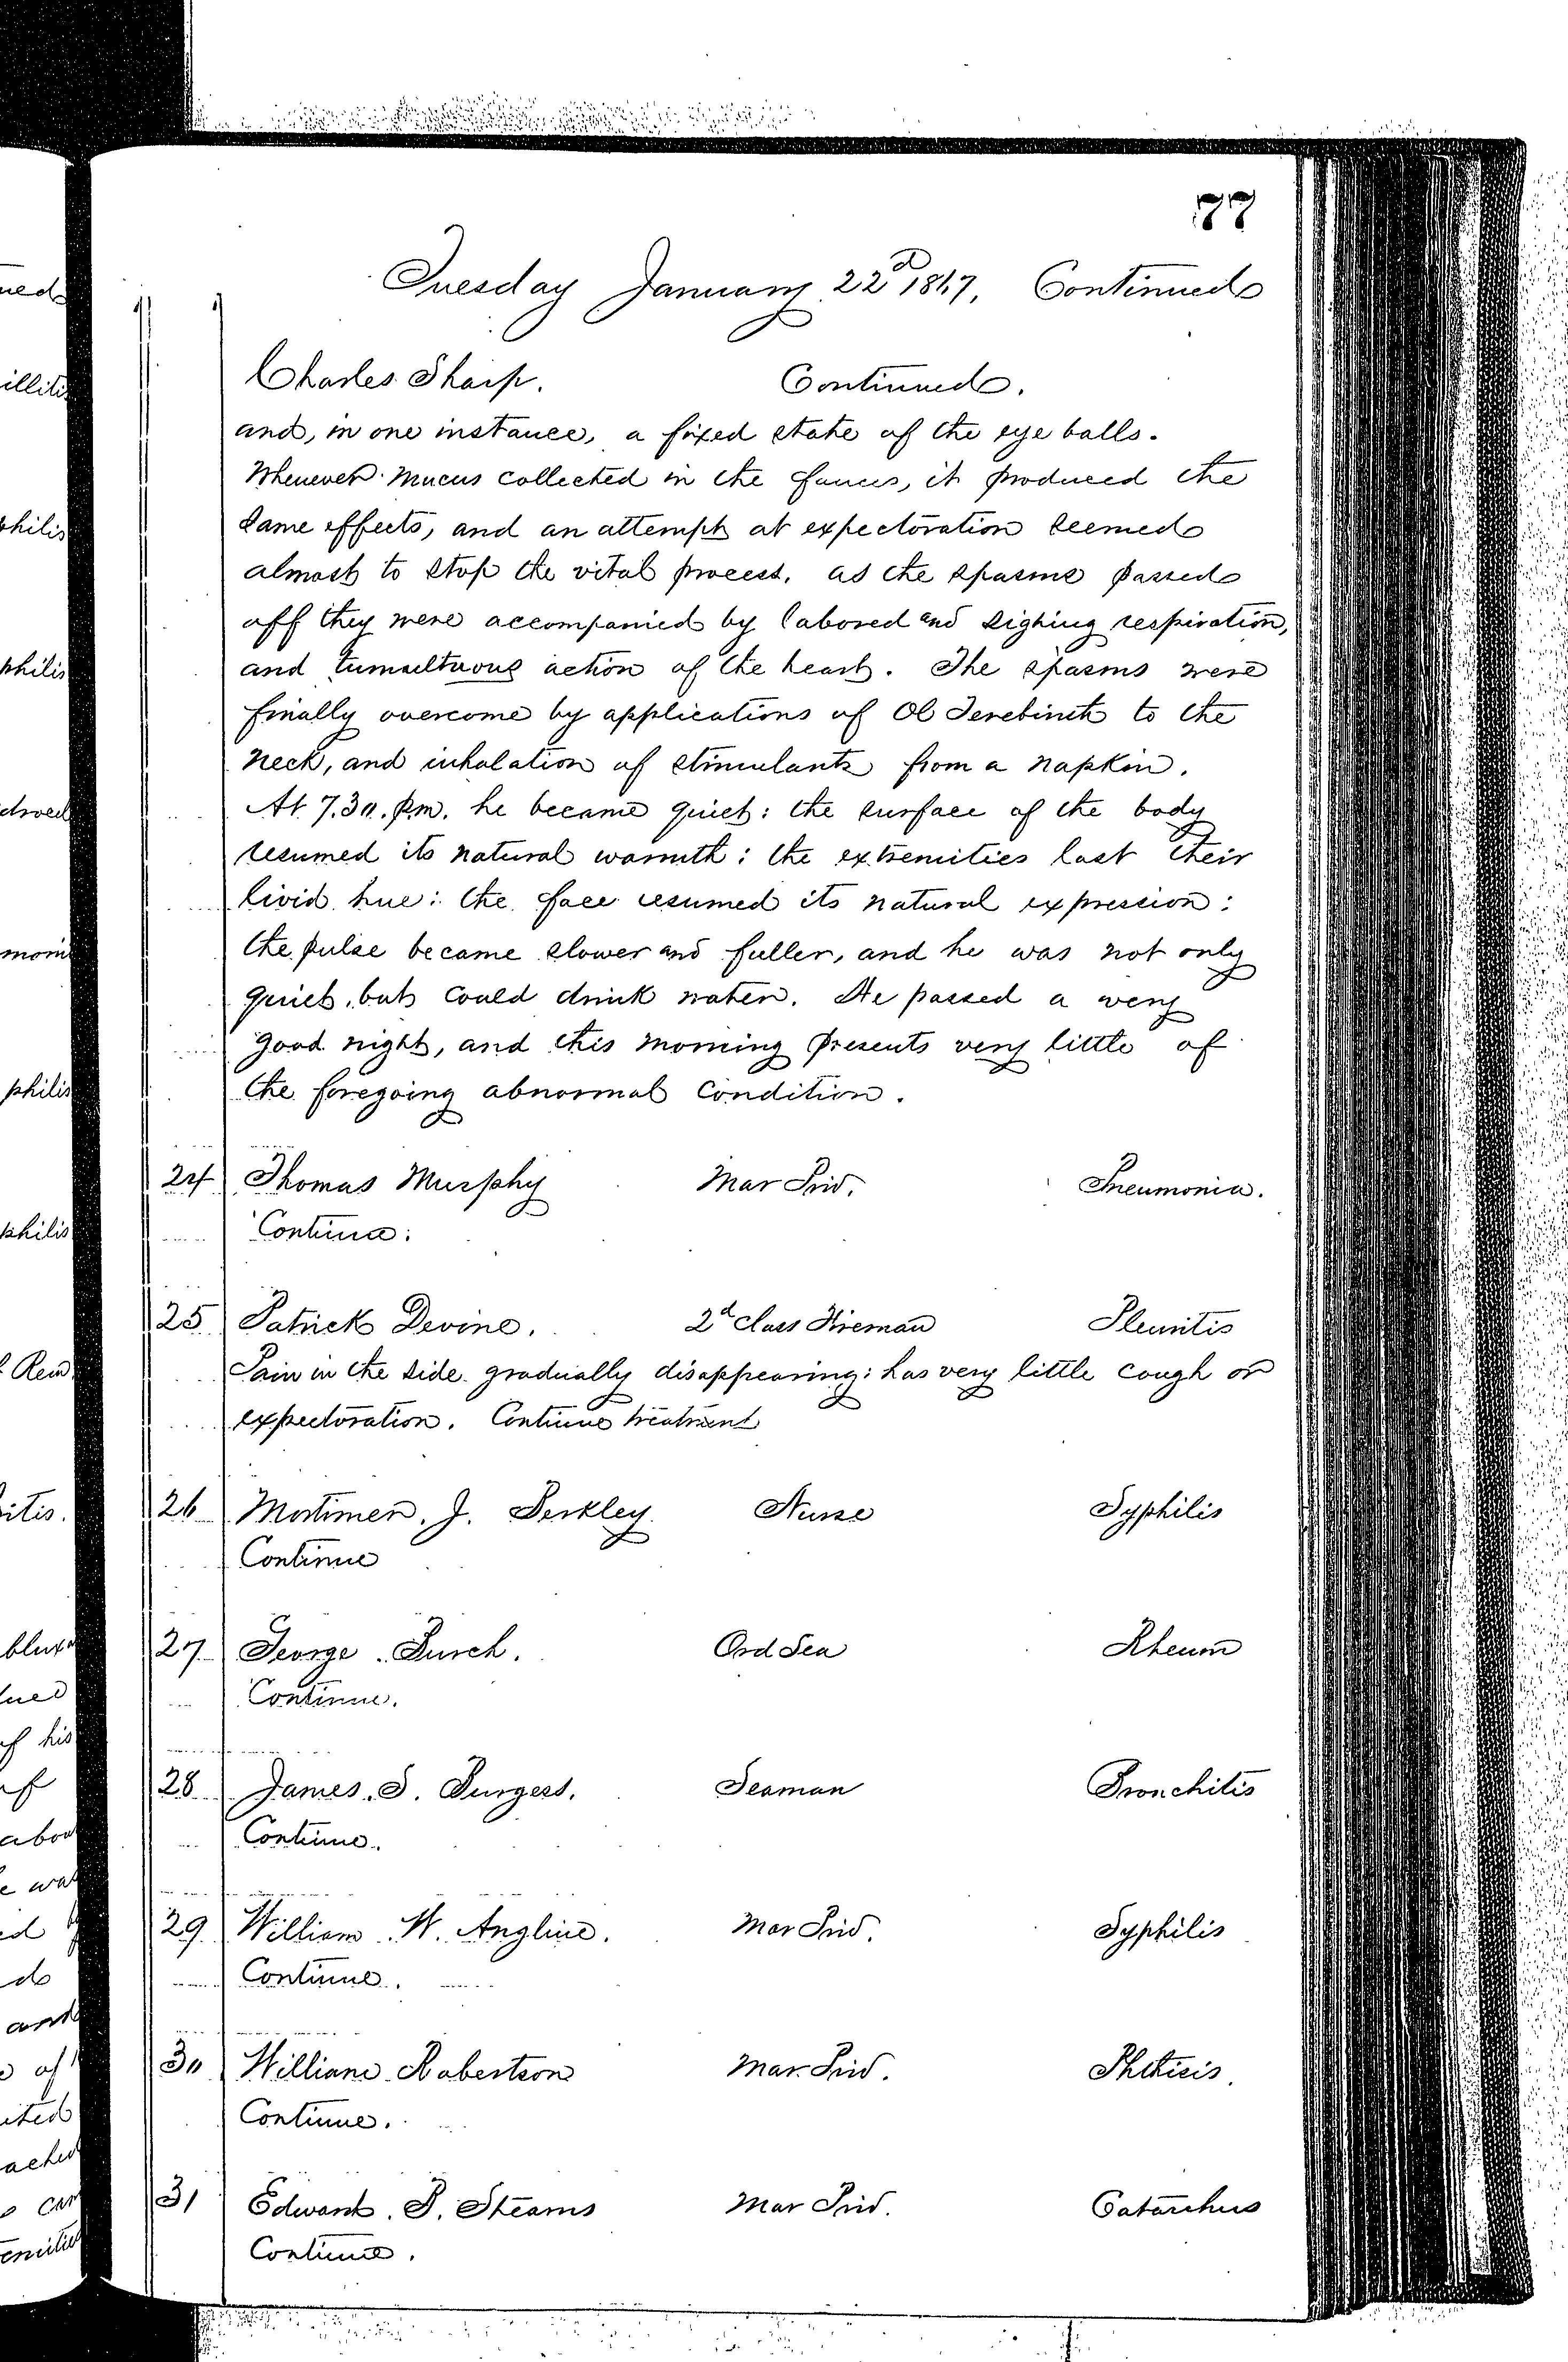 77
Tuesday January 22d 1867, Continued
Charles Sharp. Continued.
and, in one instance, a fixed state of the eye balls.
Whenever mucus collected in the fauces, it produced the
same effects, and an attempt at expectoration seemed
almost to stop the vital process. as the spasms passed
off they were accompanied by labored and sighing respiration,
and tumultuous action of the heart. The spasms were
finally overcome by applications of Ol Terebinth to the
neck, and inhalation of stimulants from a napkin.
At 7.30. p.m. he became quiet: the surface of the body
resumed its natural warmth: the extremities lost their
livid hue: the face resumed its natural expression:
the pulse became slower and fuller, and he was not only
quiet, but could drink water. He passed a very
good night, and this morning presents very little of
the foregoing abnormal condition.
24 Thomas Murphy Mar Priv. Pneumonia.
Continue.
25 Patrick Devine. 2d class Fireman Pleuritis
Pain in the side gradually disappearing: has very little cough or
expectoration. Continue treatment
26 Mortimer. J. Berkley. Nurse Syphilis
Continue
27 George. Burch. Ord Sea Rheum
Continue.
28 James. S. Burgess. Seaman Bronchitis
Continue.
29 William. W. Angline. Mar Priv. Syphilis
Continue.
30 William Robertson Mar. Priv. Phthisis.
Continue.
31 Edward. P. Stearns Mar Priv. Catarrhus
Continue.